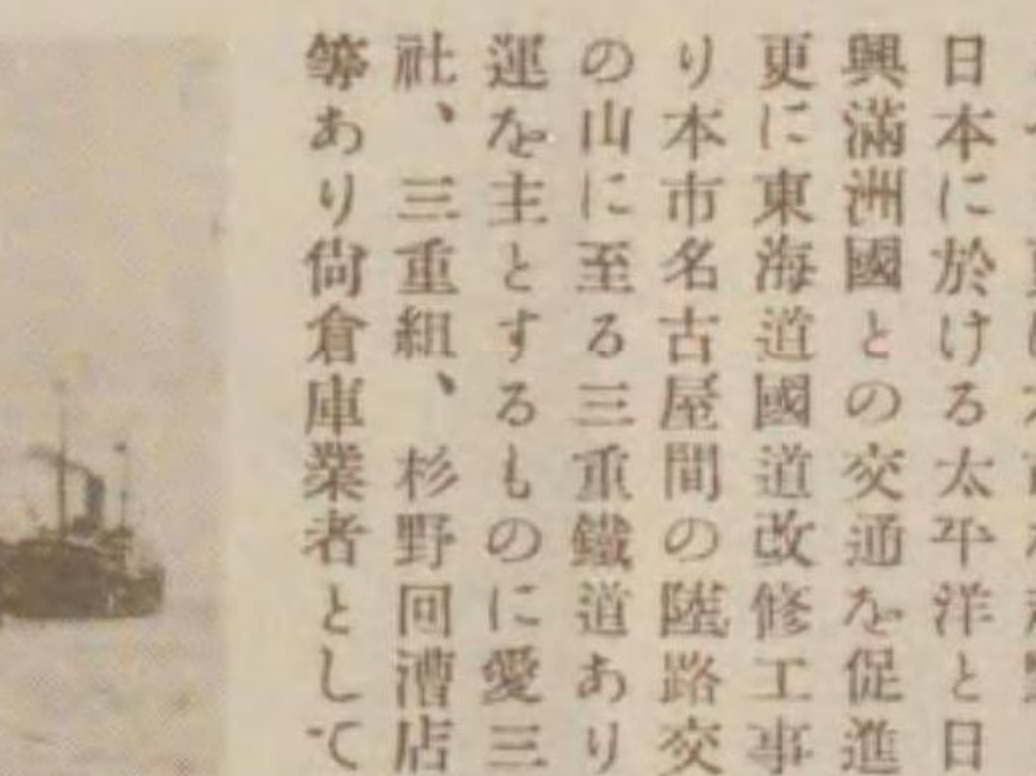 日本に於ける太平洋と日
興滿洲國との交通を促進
更に東海道國道改修工事
り本市名古屋間の陸路交
の山に至る三重鐵道あり
運を主とするものに愛三
社、三重組、杉野回漕店
等あり尙倉庫業者として